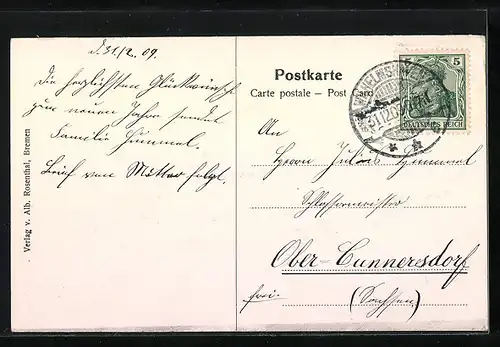 d. 31/12. 09.
Die herzlichsten Glückwünsche
zum neuen Jahre sendet
Familie Hummel.
Brief von Mutter folgt.
Verlag v. Alb. Rosenthal, Bremen
Postkarte
Carte postale – Post Card
5
DEUTSCHES REICH
WILHELMSHAVEN
31.12.09
An
Herrn Julius Hummel
Schlossermeister
Ober-Cunnersdorf
frei.
(Sachsen)